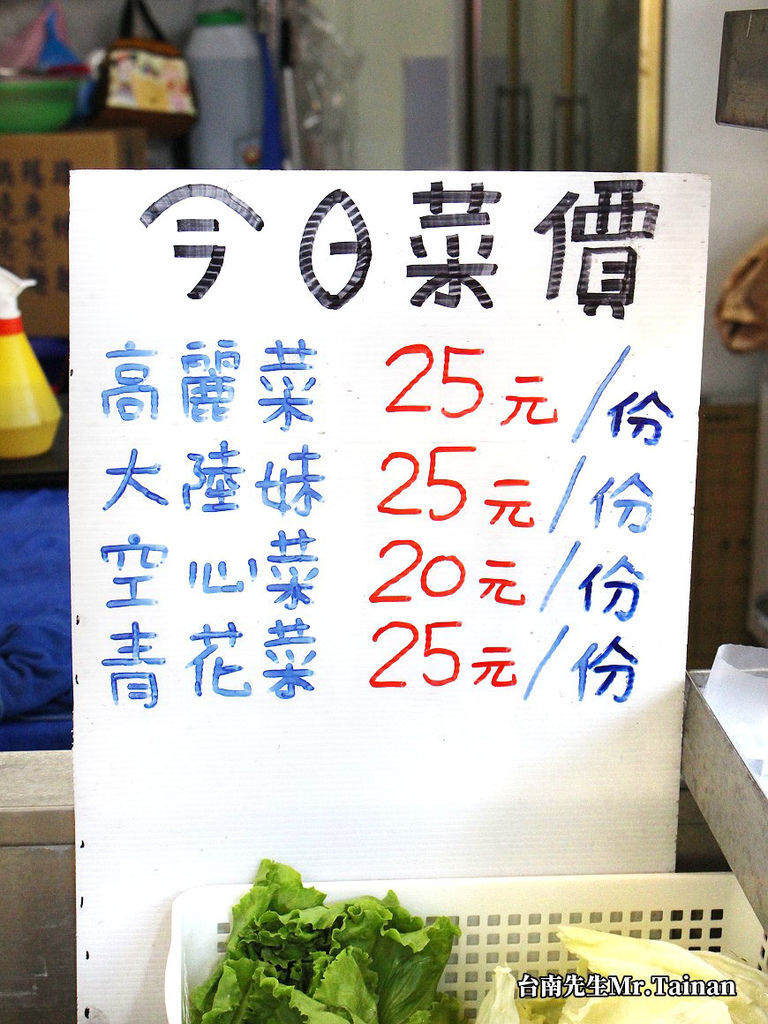 今日菜價
高麗菜 25元/份
大陸妹 25元/份
空心菜 20元/份
青花菜 25元/份
台南先生Mr.Tainan